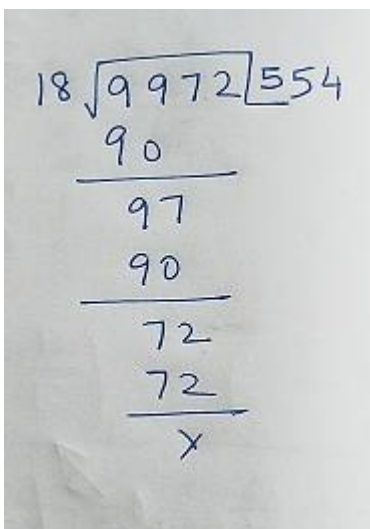 18 9972 554
90
97
90
72
72
x